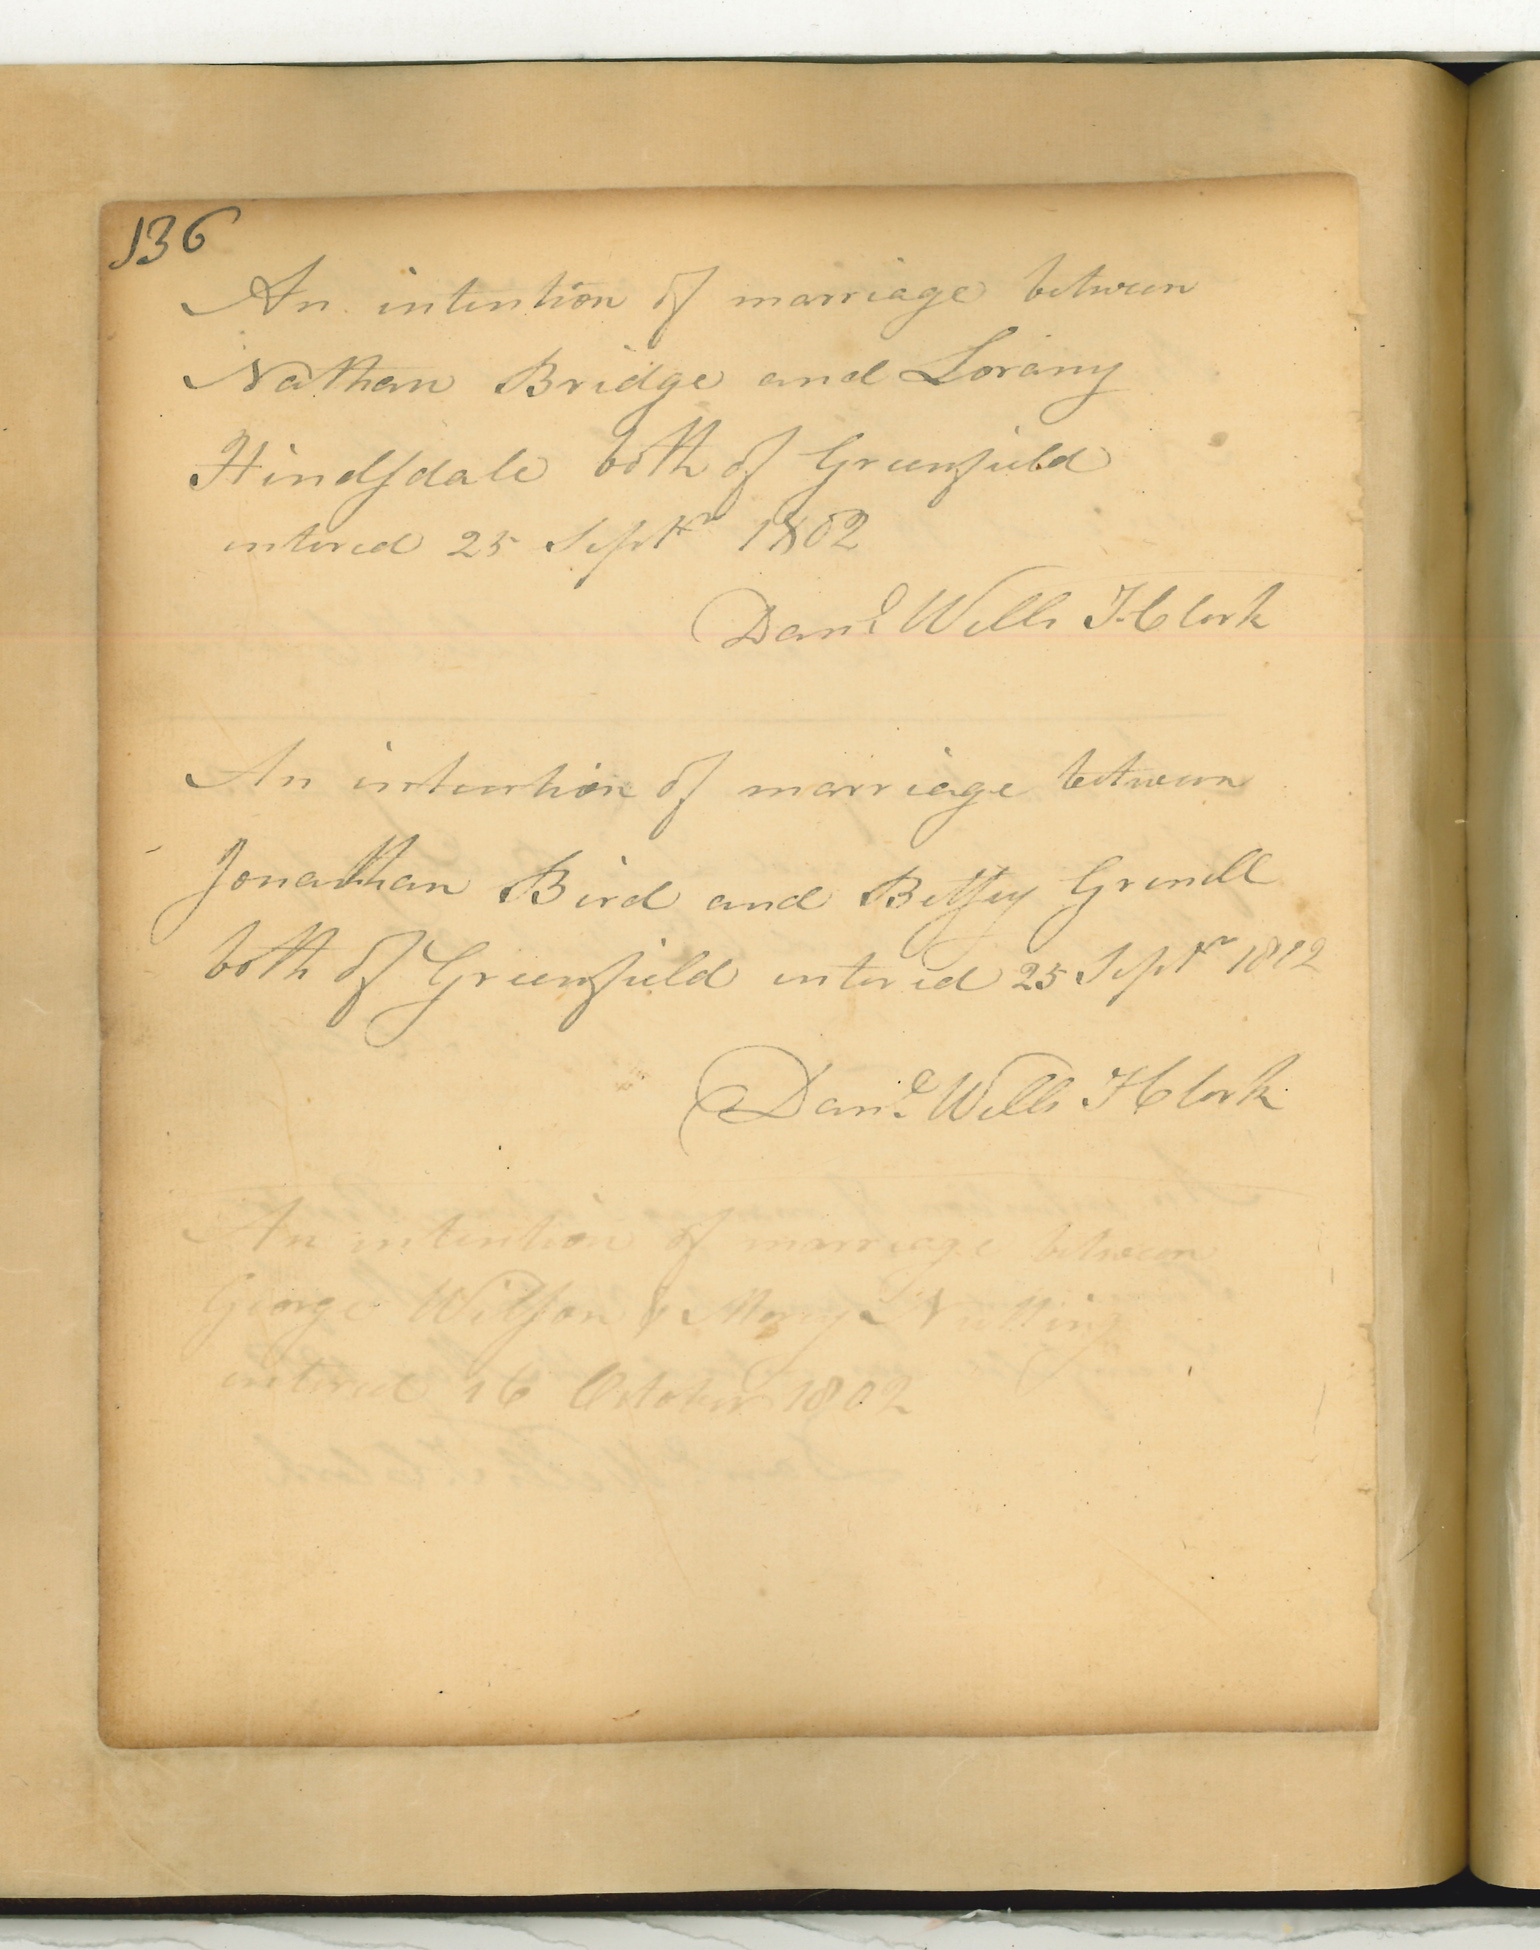 136
An intention of marriage between
Nathan Bridge and Lorany
Hindſdale both of Greenfield
entered 25 Septr 1802
Danl Wells T. Clerk
An intention of marriage between
Jonathan Bird and Betſey Grenell
both of Greenfield entered 25 Septr 1802
Danl Wells T Clerk
An intention of marriage between
George Wilſon & Mary Nutting
entered 16 October 1802